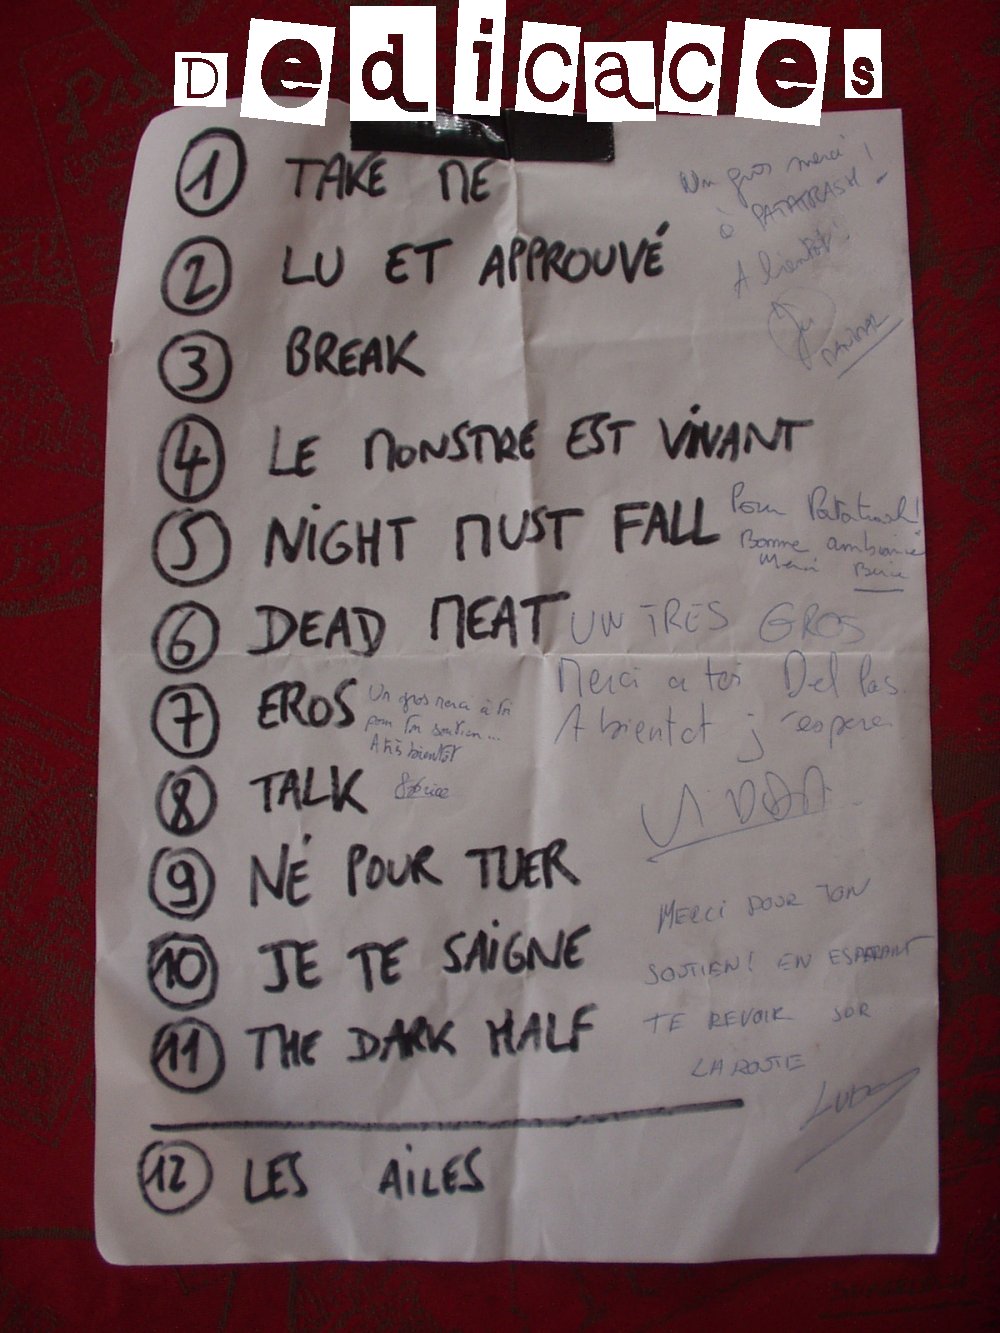 Dedicaces
1 TAKE ME
Un gros merci
à PATATRASH !
A bientôt !
2 LU ET APPROUVÉ
3 BREAK
4 LE MONSTRE EST VIVANT
5 NIGHT MUST FALL
Pour Patatrash!
Bonne ambiance
Merci
6 DEAD MEAT
UN TRES GROS
Merci a toi Del Pas
A bientot j'espere
7 EROS
Un gros merci à toi
pour ton soutien...
A très bientôt
8 TALK
9 NÉ POUR TUER
MERCI POUR TON
SOUTIEN! EN ESPERANT
TE REVOIR SUR
LA ROUTE
10 JE TE SAIGNE
11 THE DARK HALF
12 LES AILES